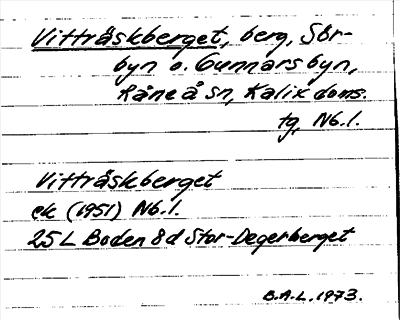 Vitträskberget, berg, Sör-
byn o. Gunnarsbyn,
Råneå sn, Kalix doms.
tg, Nb.l.
Vitträskberget
ek (1951) Nb.l.
25 L Boden 8d Stor-Degerberget
B.A-L. 1973.